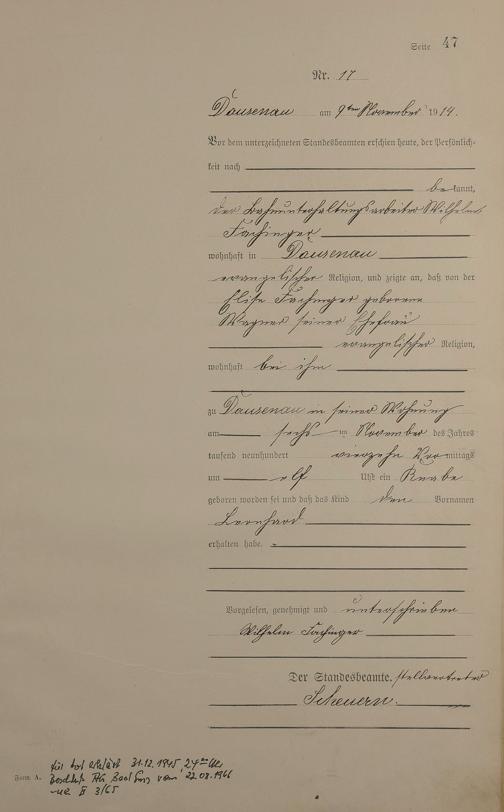 Seite 47
Nr. 17
Dausenau am 9ten November 1914.
Vor dem unterzeichneten Standesbeamten erschien heute, der Persönlich-
keit nach
bekannt,
der Bahnunterhaltungsarbeiter Wilhelm
Fachinger
wohnhaft in Dausenau
evangelischer Religion, und zeigte an, daß von der
Elise Fachinger geborene
Wagner seiner Ehefrau
evangelischer Religion,
wohnhaft bei ihm
zu Dausenau in seiner Wohnung
am sechs ten November des Jahres
tausend neunhundert vierzehn Vormittags
um elf Uhr ein Knabe
geboren worden sei und daß das Kind den Vornamen
Leonhard
erhalten habe.
Vorgelesen, genehmigt und unterschrieben
Wilhelm Fachinger
Der Standesbeamte. stellvertreter
Scheuern.
für tot erklärt 31.12.1945 24 Uhr
Form A. Beschluß AG Bad Ems vom 22.08.1966
II 3/65